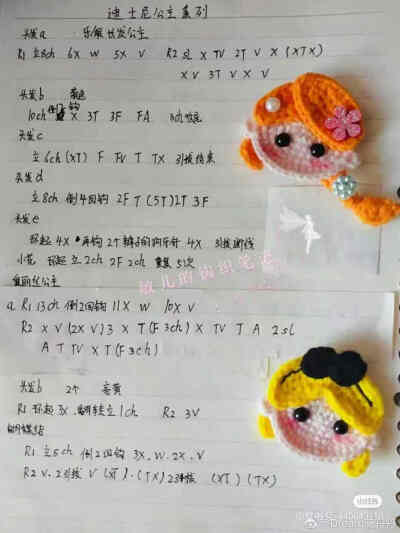 迪士尼公主系列
头发a 乐佩长发公主
R1 立8ch 6X W 5X V R2 sl X TV 2T V X (XTX)
X V 3T V X V
头发b
10ch 倒 钩 X 3T 3F FA
头发c
立6ch (XT) F FV T TX 引拔结束
头发d
立8ch 倒4回钩 2F T (5T) 2T 3F
头发e
环起 4X 再钩2个辫子的狗牙针 4X 引拔断线
小花 环起 立2ch 2F 2ch 重复5次
爱丽丝公主
a R1 13ch 倒2回钩 11X W 10X V
R2 X V (2X V) 3 X T (F 3ch) X TV T A 2sl
A T TV X T (F 3ch)
头发b 2个 姜黄
R1 环起 3X, 翻转立1ch R2 3V
蝴蝶结
R1 立5ch 倒2回钩 3X, W, 2X, V
R2 V, 2引拔 V (XT), (TX) 2引拔 (XT) (TX)
敏儿的钩织笔记
小红书